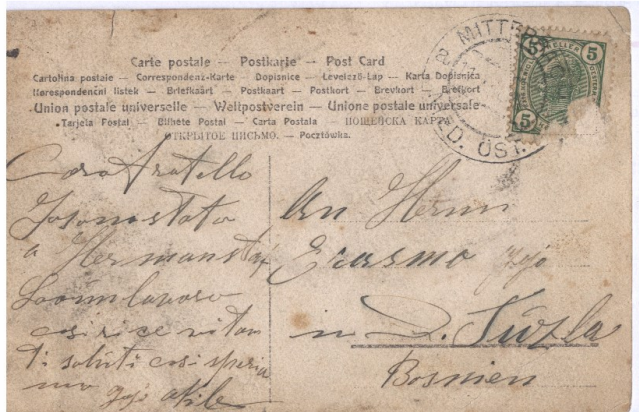 Carte postale — Postkarte — Post Card
Cartolina postale — Correspondenz-Karte — Dopisnice — Levelező-Lap — Karta Dopisnica
Korespondenční lístek — Briefkaart — Postkaart — Postkort — Brevkort — Brefkort
Union postale universelle — Weltpostverein — Unione postale universale
Tarjeta Postal — Bilhete Postal — Carta Postala — ПОШЕПСКА КАРТА
ОТКРЫТОЕ ПИСЬМО. — Pocztówka.
MITTER
ED. ÖST.
5 HELLER 5
5
Caro fratello
Io sono stato
a Hermanstat
lavoro
così
ti saluti così speria
mo
An Herrn
Erasmo
in D. Tuzla
Bosnien